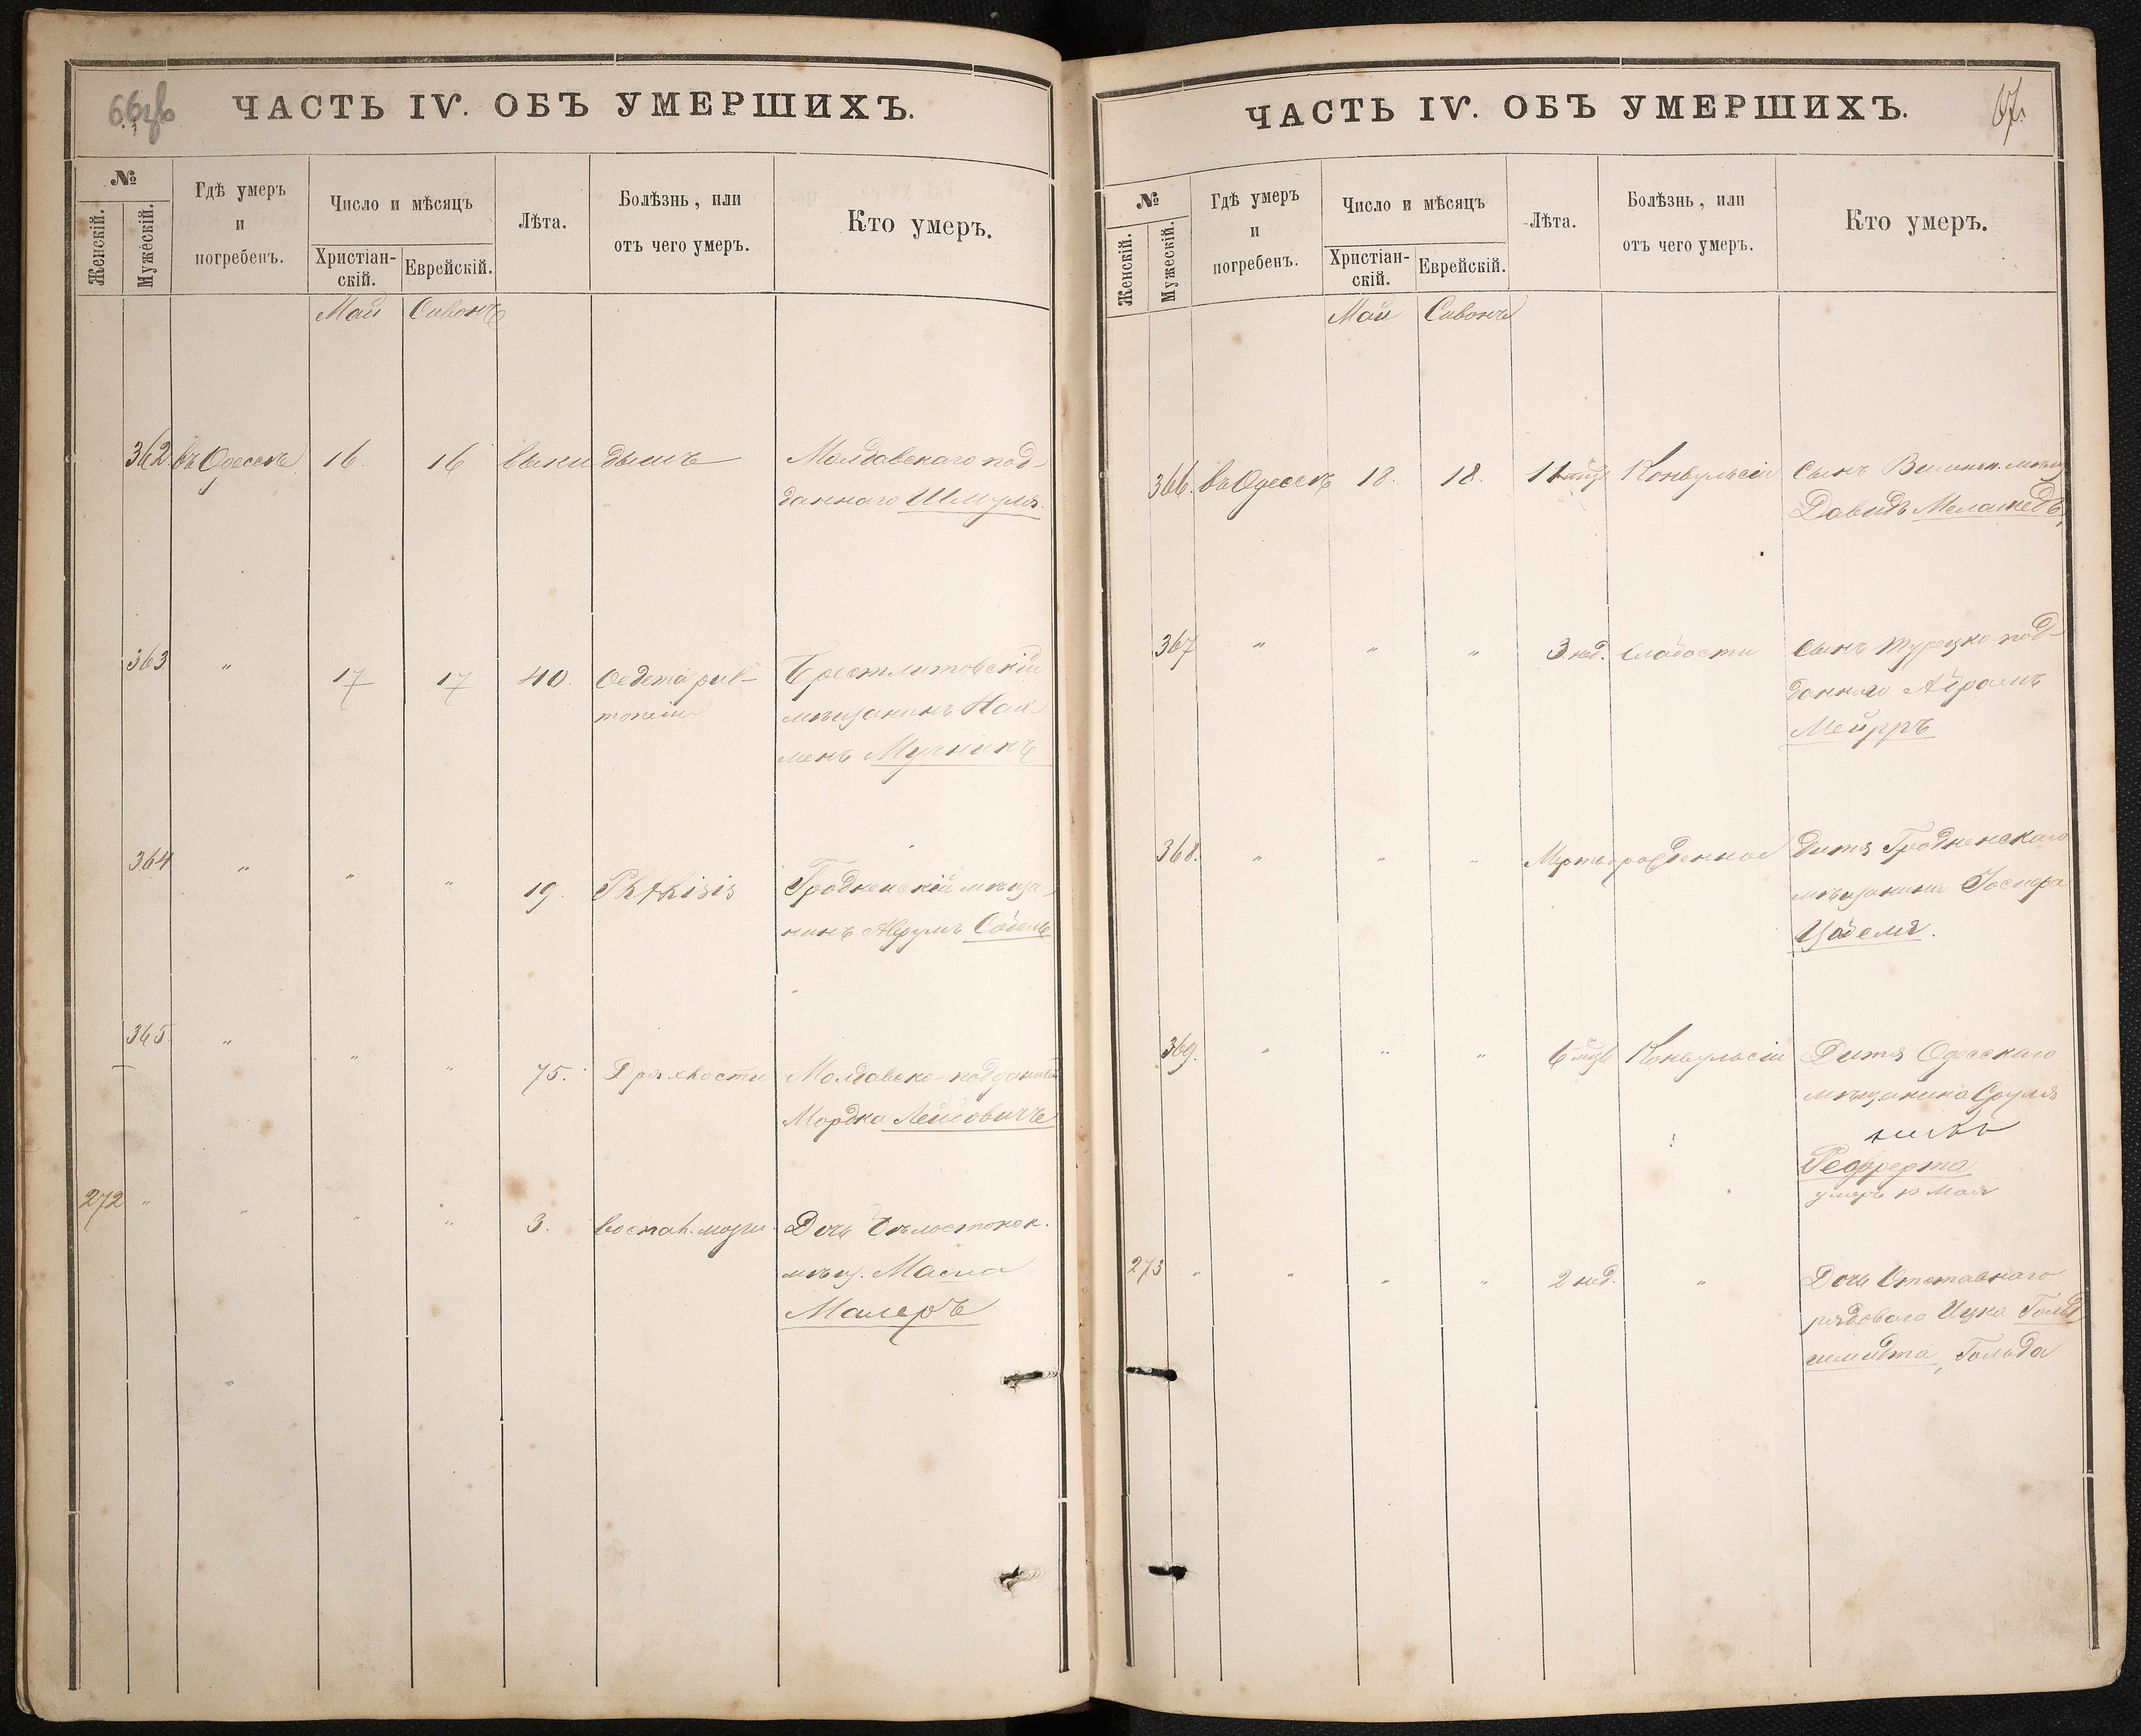 ЧАСТЬ IV. ОБЪ УМЕРШИХЪ.
№
Женскій.
Мужескій.
Гдѣ умеръ
и
погребенъ.
Число и мѣсяцъ
Христіан-
скій.
Еврейскій.
Лѣта.
Болѣзнь, или
отъ чего умеръ.
Кто умеръ.
Май Сивонъ
362. въ Одессѣ 16. 16 выкидышъ Молдавскаго под-
даннаго Шмуля.
363 " 17 17 40. Oedema pul- Брестлитовскій
monum мѣщанинъ Нах-
менъ Мучникъ
364 " " " 19. Phthisis Гродненскій мѣща-
нинъ Аврумъ Собель
365. " " " 75. Дряхлости Молдавско-подданный
Мордко Лейбовичъ
272 " " " " 3. воспал. мозга. Дочь Бѣлостокск.
мѣщ. Масна
Малеръ
"
ЧАСТЬ IV. ОБЪ УМЕРШИХЪ.
67.
№
Женскій.
Мужескій.
Гдѣ умеръ
и
погребенъ.
Число и мѣсяцъ
Христіан-
скій.
Еврейскій.
Лѣта.
Болѣзнь, или
отъ чего умеръ.
Кто умеръ.
Май Сивонъ
366. въ Одессѣ 18. 18. 11 Конвульсіи Сынъ Виленск. мѣщ
Давидъ Меламедъ,
367 " " " 3 нед. Слабости Сынъ Турецко-под-
даннаго Абрамъ
Мейръ
368. " " " Мертворожденное Дитя Гродненскаго
мѣщанина
Цобеля.
369. " " " 6 Конвульсіи Дитя Одесскаго
мѣщанина Сруля
умеръ 10 Мая
273 " " " " 2 нед. " Дочь Отставнаго
рядоваго Ицка Гольд
шмидта, Гольда